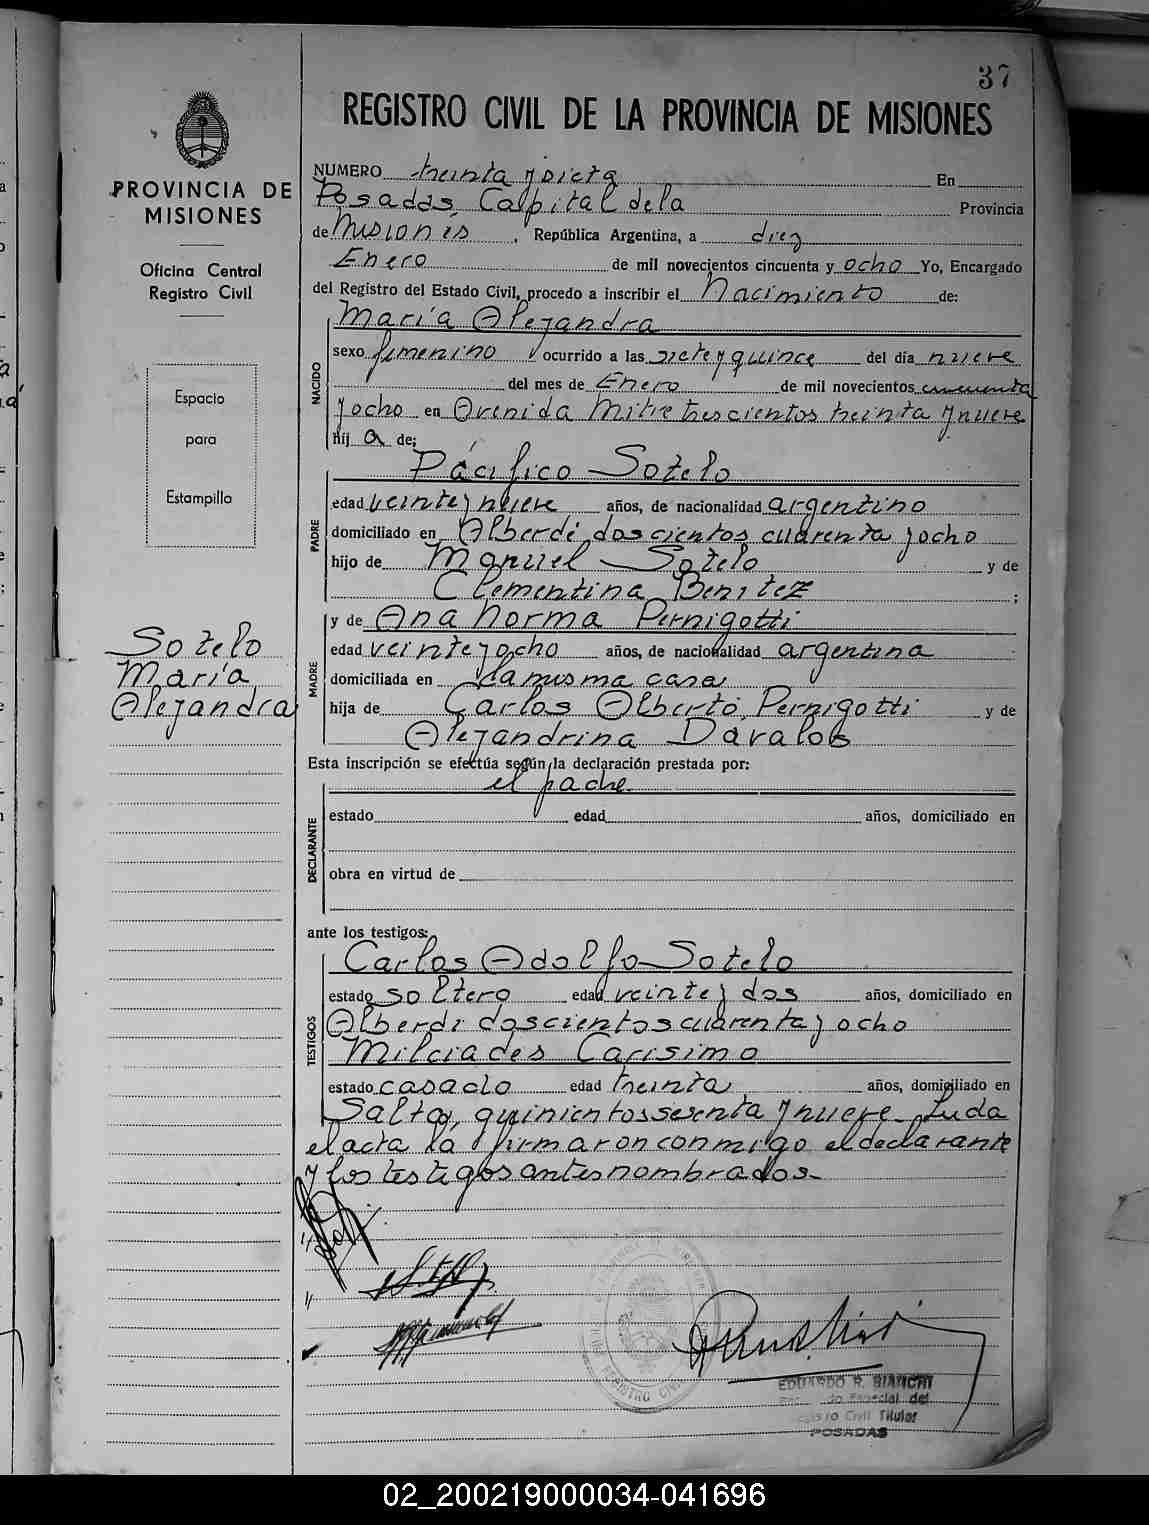 37
REGISTRO CIVIL DE LA PROVINCIA DE MISIONES
PROVINCIA DE
MISIONES
Oficina Central
Registro Civil
Espacio
para
Estampilla
Sotelo
María
Alejandra
NUMERO treinta y siete En
Posadas, Capital de la Provincia
de Misiones, República Argentina, a diez
Enero de mil novecientos cincuenta y ocho Yo, Encargado
del Registro del Estado Civil, procedo a inscribir el Nacimiento de:
María Alejandra
NACIDO
sexo femenino ocurrido a las siete y quince del día nueve
del mes de Enero de mil novecientos cincuenta
y ocho en Avenida Mitre trescientos treinta y nueve
hij a de:
Pácifico Sotelo
PADRE
edad veinte y nueve años, de nacionalidad argentino
domiciliado en Alberdi doscientos cuarenta y ocho
hijo de Manuel Sotelo y de
Clementina Benitez ;
y de Ana Norma Pernigotti
MADRE
edad veinte y ocho años, de nacionalidad argentina
domiciliada en la misma casa
hija de Carlos Alberto Pernigotti y de
Alejandrina Davalos
Esta inscripción se efectúa según la declaración prestada por:
el padre.
DECLARANTE
estado edad años, domiciliado en
obra en virtud de
ante los testigos:
Carlos Adolfo Sotelo
TESTIGOS
estado soltero edad veinte y dos años, domiciliado en
Alberdi doscientos cuarenta y ocho
Milciades Carisimo
estado casado edad treinta años, domiciliado en
Salta, quinientos sesenta y nueve. Leida
el acta la firmaron conmigo el declarante
y los testigos antes nombrados.-
EDUARDO R. BIANCHI
Especial del
Civil Titular
POSADAS
REGISTRO CIVIL
02_200219000034-041696